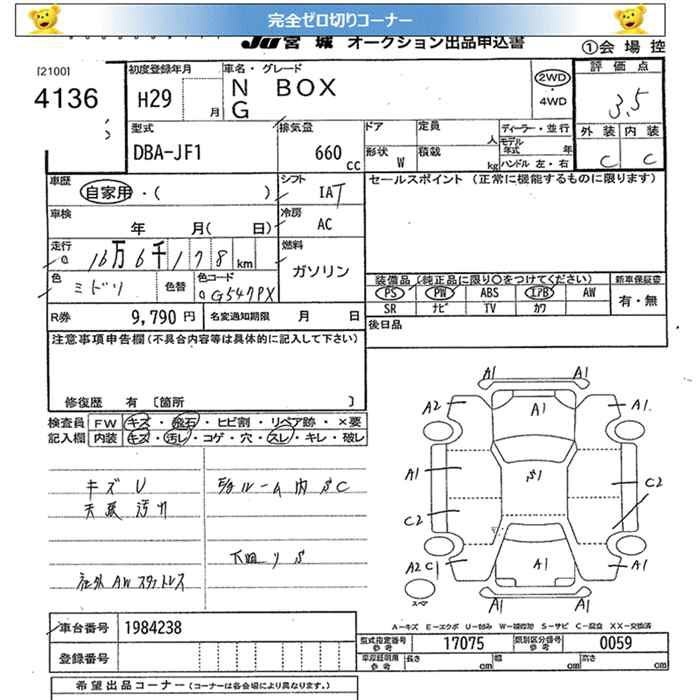 完全ゼロ切りコーナー
JU 宮城 オークション出品申込書
①会場控
[2100]
4136
初度登録年月
H29 月
車名・グレード
N BOX
G
2WD
・
4WD
評価点
3.5
外装 内装
C C
型式
DBA-JF1
排気量
660 cc
ドア
形状 W
定員 人
積載 kg
ディーラー・並行
モデル年式 年
ハンドル 左・右
車歴
自家用・( )
シフト
IAT
セールスポイント (正常に機能するものに限ります)
車検
年 月( 日)
冷房
AC
走行
16万6千178km
燃料
ガソリン
色
ミドリ
色替
色コード
G547PX
装備品 (純正品に限り○をつけてください)
新車保証書
PS PW ABS エアB AW
SR ナビ TV カワ
有・無
R券 9,790 円
名変通知期限 月 日
後日品
注意事項申告欄(不具合内容等は具体的に記入して下さい)
修復歴 有 〔箇所 〕
検査員 FW キズ・飛石・ヒビ割・リペア跡・×要
記入欄 内装 キズ・汚レ・コゲ・穴・スレ・キレ・破レ
キズ U
天張 汚れ
ルーム内 SC
下廻り S
社外 AW スタットレス
A1 A1
A2 A1 A1
A1 S1 C2
C2
A2 C1 A1 A1
A1 A1
スペア
A-キズ E-エクボ U-凹み W-補修跡 S-サビ C-腐食 XX-交換済
車台番号 1984238
登録番号
型式指定番号 参考 17075 類別区分番号 参考 0059
車庫証明用 参考 長さ cm 幅 cm 高さ cm
希望出品コーナー (コーナーは各会場により異なります。)